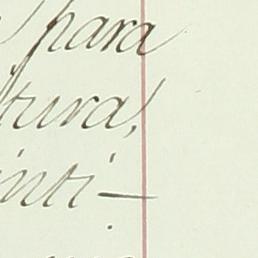 para
tura,
inti-